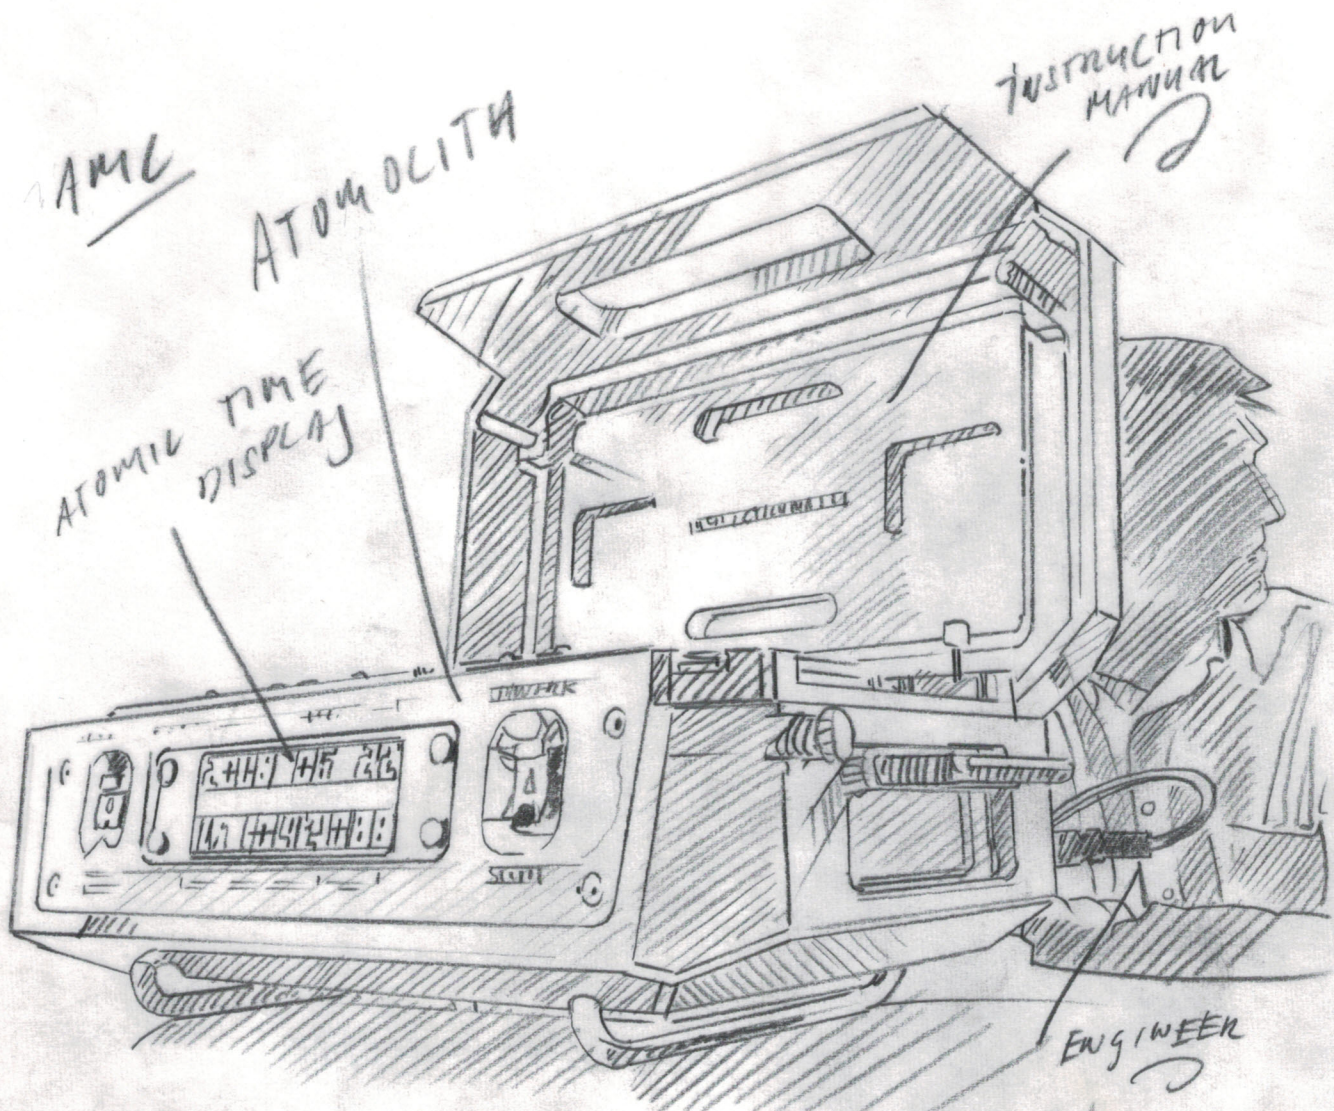 AMC
ATOMOLITH
INSTRUCTION
MANUAL
ATOMIC TIME
DISPLAY
ENGINEER